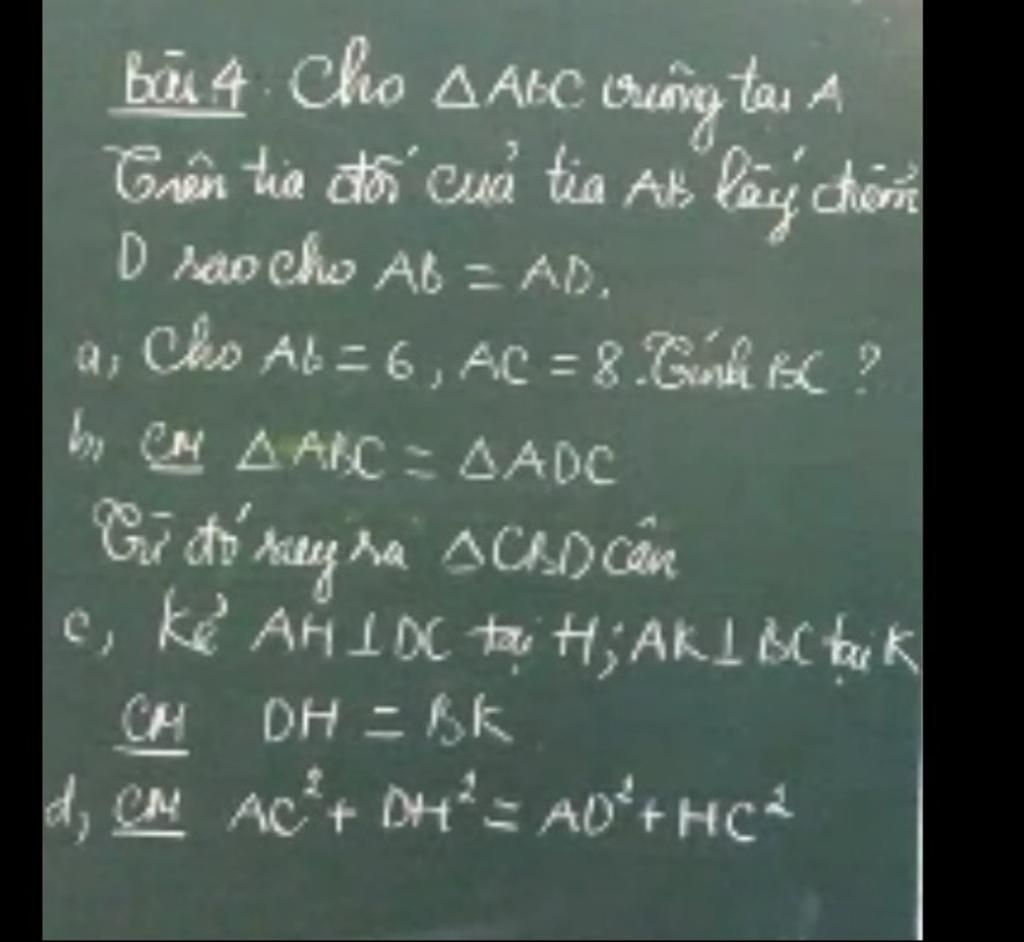 Bài 4. Cho △ABC vuông tại A
Trên tia đối của tia AB lấy điểm
D sao cho AB = AD.
a, Cho AB = 6, AC = 8. Tính BC ?
b, CM △ABC = △ADC
Từ đó suy ra △CBD cân
c, Kẻ AH ⊥ DC tại H; AK ⊥ BC tại K
CM DH = BK
d, CM AC² + DH² = AD² + HC²